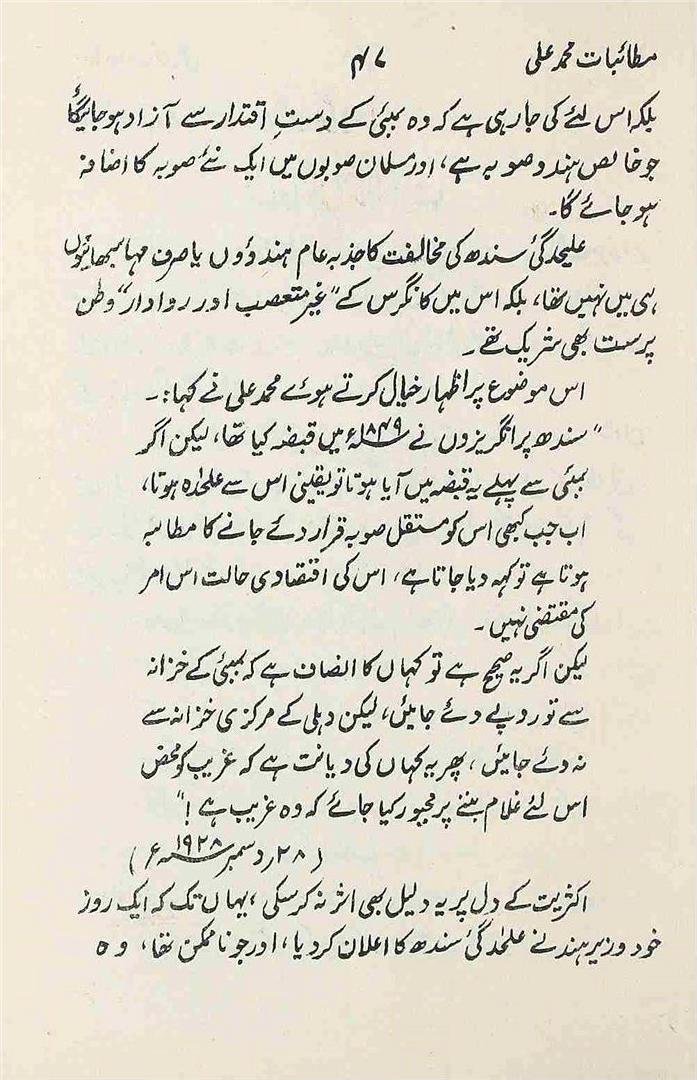 مطائبات محمد علی ۴۷
بلکہ اس لئے کی جارہی ہے کہ وہ بمبئی کے دستِ اقتدار سے آزاد ہوجائیگا
جو خالص ہندو صوبہ ہے، اور مسلمان صوبوں میں ایک نئے صوبہ کا اضافہ
ہوجائے گا۔
علیحدگیٔ سندھ کی مخالفت کا جذبہ عام ہندوؤں یا صرف مہاسبھائیوں
ہی میں نہیں تھا، بلکہ اس میں کانگرس کے "غیر متعصب اور روادار" وطن
پرست بھی شریک تھے۔
اس موضوع پر اظہار خیال کرتے ہوئے محمد علی نے کہا:۔
"سندھ پر انگریزوں نے ۱۸۴۹ء میں قبضہ کیا تھا، لیکن اگر
بمبئی سے پہلے یہ قبضہ میں آیا ہوتا تو یقینی اس سے علٰحدہ ہوتا،
اب جب کبھی اس کو مستقل صوبہ قرار دئے جانے کا مطالبہ
ہوتا ہے تو کہہ دیا جاتا ہے، اس کی اقتصادی حالت اس امر
کی مقتضی نہیں۔
لیکن اگر یہ صحیح ہے تو کہاں کا انصاف ہے کہ بمبئی کے خزانہ
سے تو روپے دئے جائیں، لیکن دہلی کے مرکزی خزانہ سے
نہ دئے جائیں، پھر یہ کہاں کی دیانت ہے کہ غریب کو محض
اس لئے غلام بننے پر مجبور کیا جائے کہ وہ غریب ہے!"
(۲۸ر دسمبر ۱۹۲۸ء)
اکثریت کے دل پر یہ دلیل بھی اثر نہ کرسکی، یہاں تک کہ ایک روز
خود وزیر ہند نے علٰحدگیٔ سندھ کا اعلان کردیا، اور جو ناممکن تھا، وہ